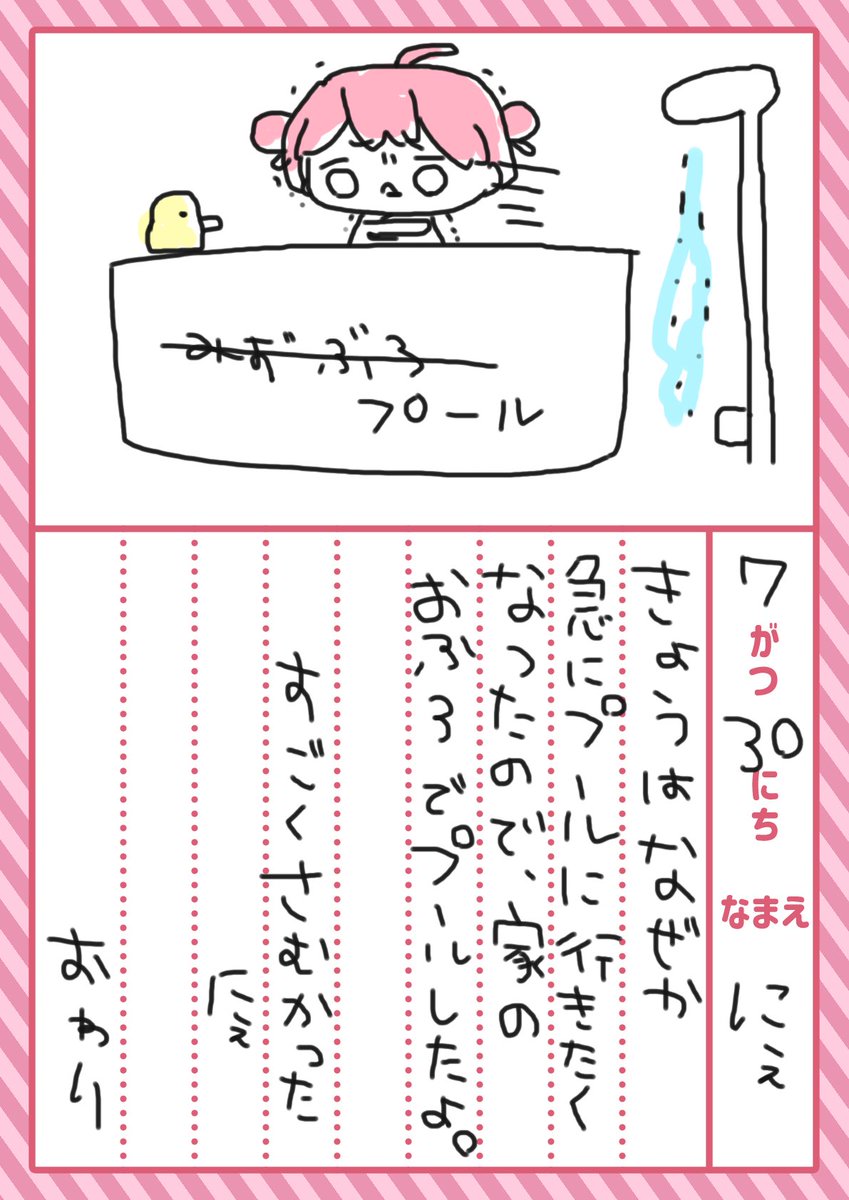 みずぶろ
プール
7がつ30にち なまえ にぇ
きょうはなぜか
急にプールに行きたく
なったので、家の
おふろでプールしたよ。
すごくさむかった
にぇ
おわり